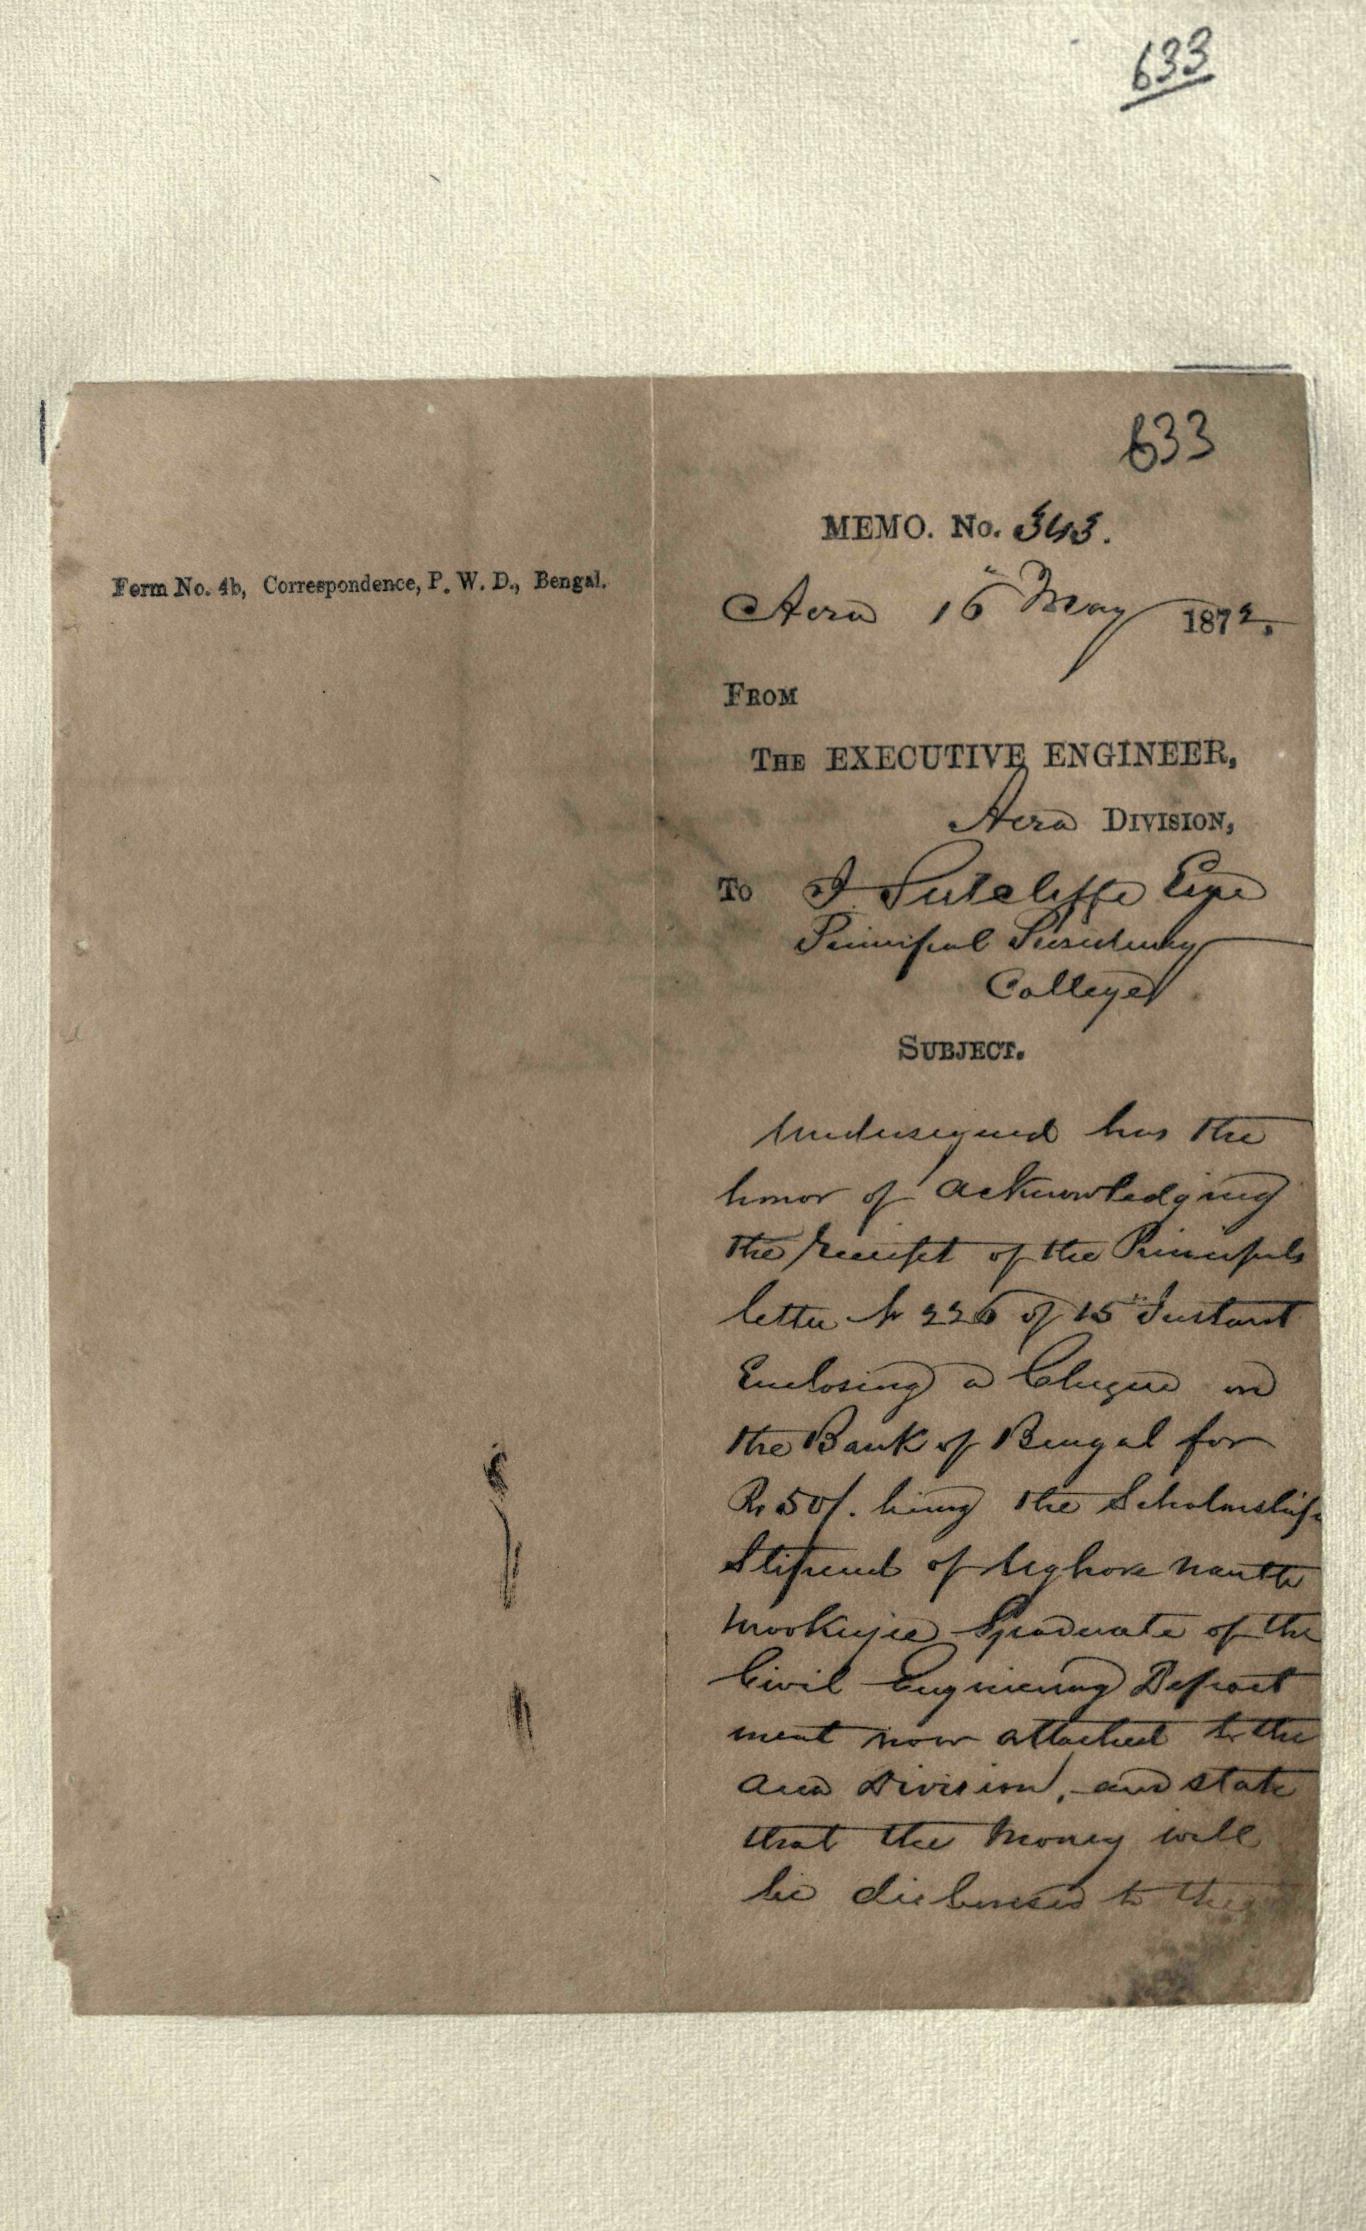 633
633
MEMO. No. 343.
Form No. 4b, Correspondence, P. W. D., Bengal.
Acra 16th May 1872.
FROM
THE EXECUTIVE ENGINEER,
Acra DIVISION,
To J Sutcliffe Esqre
Principal Presidency
College
SUBJECT.
Undersigned has the
honor of acknowledging
the receipt of the Principals
letter No 226 of 15th Instant
Enclosing a Cheque on
the Bank of Bengal for
Rs 50/. being the Scholarship
Stipend of Ughore Nauth
Mookerjee Graduate of the
Civil Engineering Depart
ment now attached to the
Acra Division, and state
that the Money will
be disbursed to the